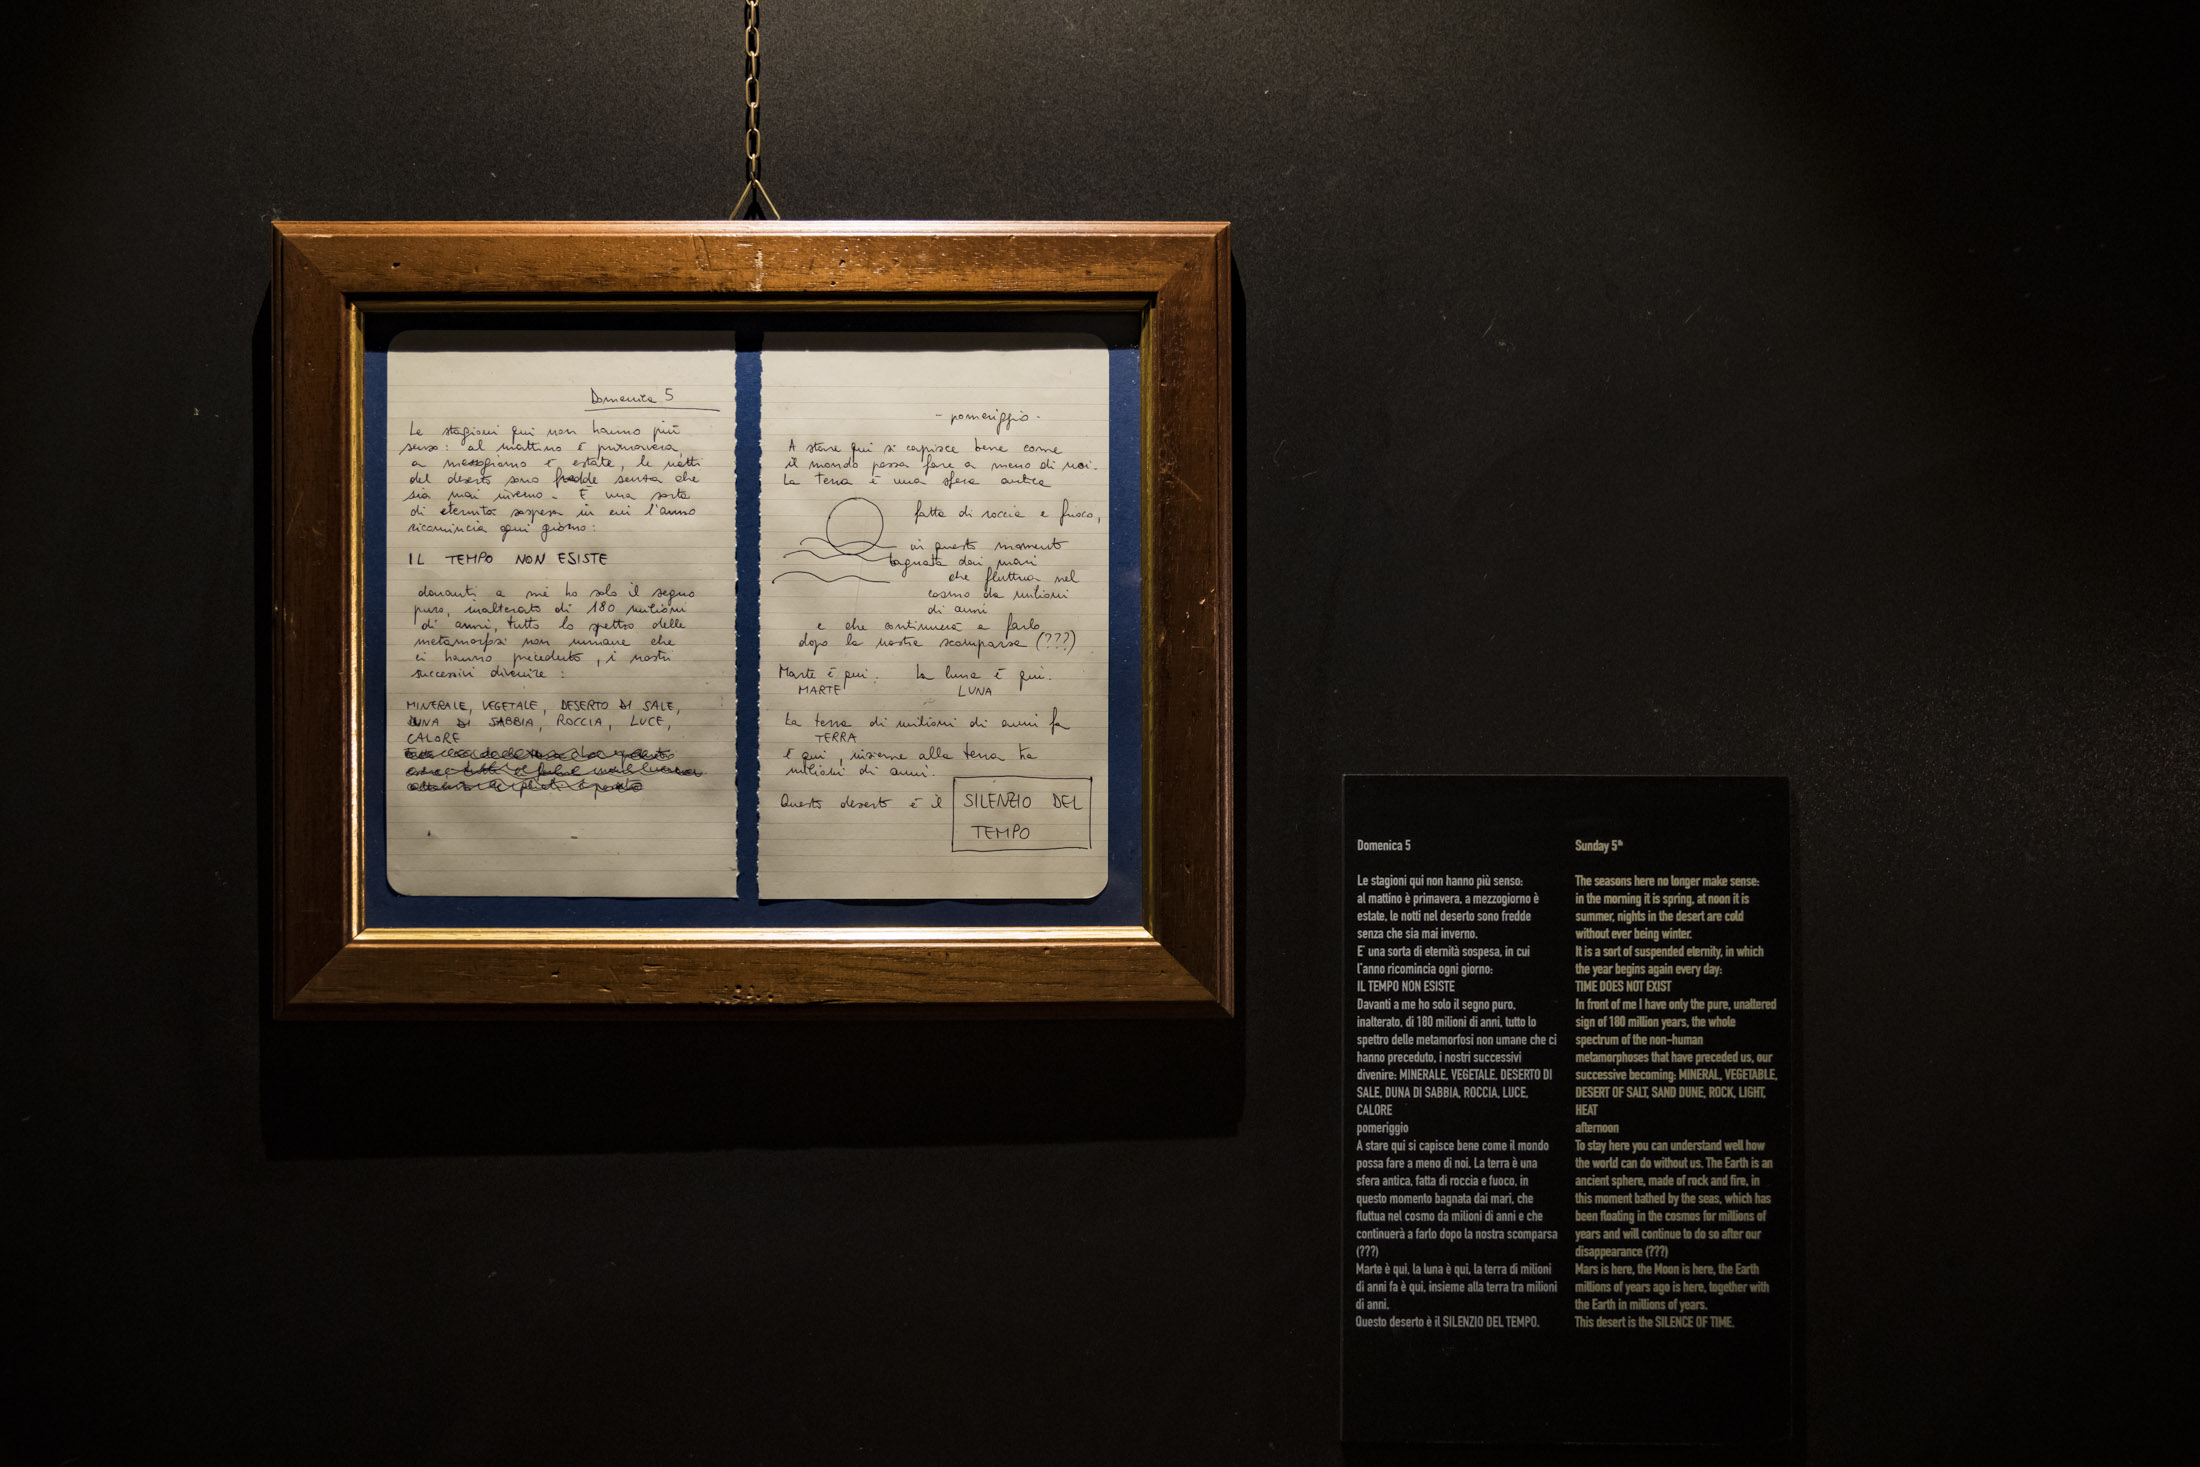 Domenica 5
Le stagioni qui non hanno più
senso: al mattino è primavera,
a mezzogiorno è estate, le notti
del deserto sono fredde senza che
sia mai inverno. È una sorta
di eternità sospesa in cui l'anno
ricomincia ogni giorno:
IL TEMPO NON ESISTE
davanti a me ho solo il segno
puro, inalterato di 180 milioni
di anni, tutto lo spettro delle
metamorfosi non umane che
ci hanno preceduto, i nostri
successivi divenire:
MINERALE, VEGETALE, DESERTO DI SALE,
DUNA DI SABBIA, ROCCIA, LUCE,
CALORE
- pomeriggio -
A stare qui si capisce bene come
il mondo possa fare a meno di noi.
La terra è una sfera antica
fatta di roccia e fuoco,
in questo momento
bagnata dai mari
che fluttua nel
cosmo da milioni
di anni
e che continuerà a farlo
dopo la nostra scomparsa (???)
Marte è qui. La luna è qui.
MARTE LUNA
La terra di milioni di anni fa
TERRA
è qui, insieme alla terra tra
milioni di anni.
Questo deserto è il SILENZIO DEL
TEMPO
Domenica 5
Le stagioni qui non hanno più senso:
al mattino è primavera, a mezzogiorno è
estate, le notti nel deserto sono fredde
senza che sia mai inverno.
E' una sorta di eternità sospesa, in cui
l'anno ricomincia ogni giorno:
IL TEMPO NON ESISTE
Davanti a me ho solo il segno puro,
inalterato, di 180 milioni di anni, tutto lo
spettro delle metamorfosi non umane che ci
hanno preceduto, i nostri successivi
divenire: MINERALE, VEGETALE, DESERTO DI
SALE, DUNA DI SABBIA, ROCCIA, LUCE,
CALORE
pomeriggio
A stare qui si capisce bene come il mondo
possa fare a meno di noi. La terra è una
sfera antica, fatta di roccia e fuoco, in
questo momento bagnata dai mari, che
fluttua nel cosmo da milioni di anni e che
continuerà a farlo dopo la nostra scomparsa
(???)
Marte è qui, la luna è qui, la terra di milioni
di anni fa è qui, insieme alla terra tra milioni
di anni.
Questo deserto è il SILENZIO DEL TEMPO.
Sunday 5th
The seasons here no longer make sense:
in the morning it is spring, at noon it is
summer, nights in the desert are cold
without ever being winter.
It is a sort of suspended eternity, in which
the year begins again every day:
TIME DOES NOT EXIST
In front of me I have only the pure, unaltered
sign of 180 million years, the whole
spectrum of the non-human
metamorphoses that have preceded us, our
successive becoming: MINERAL, VEGETABLE,
DESERT OF SALT, SAND DUNE, ROCK, LIGHT,
HEAT
afternoon
To stay here you can understand well how
the world can do without us. The Earth is an
ancient sphere, made of rock and fire, in
this moment bathed by the seas, which has
been floating in the cosmos for millions of
years and will continue to do so after our
disappearance (???)
Mars is here, the Moon is here, the Earth
millions of years ago is here, together with
the Earth in millions of years.
This desert is the SILENCE OF TIME.